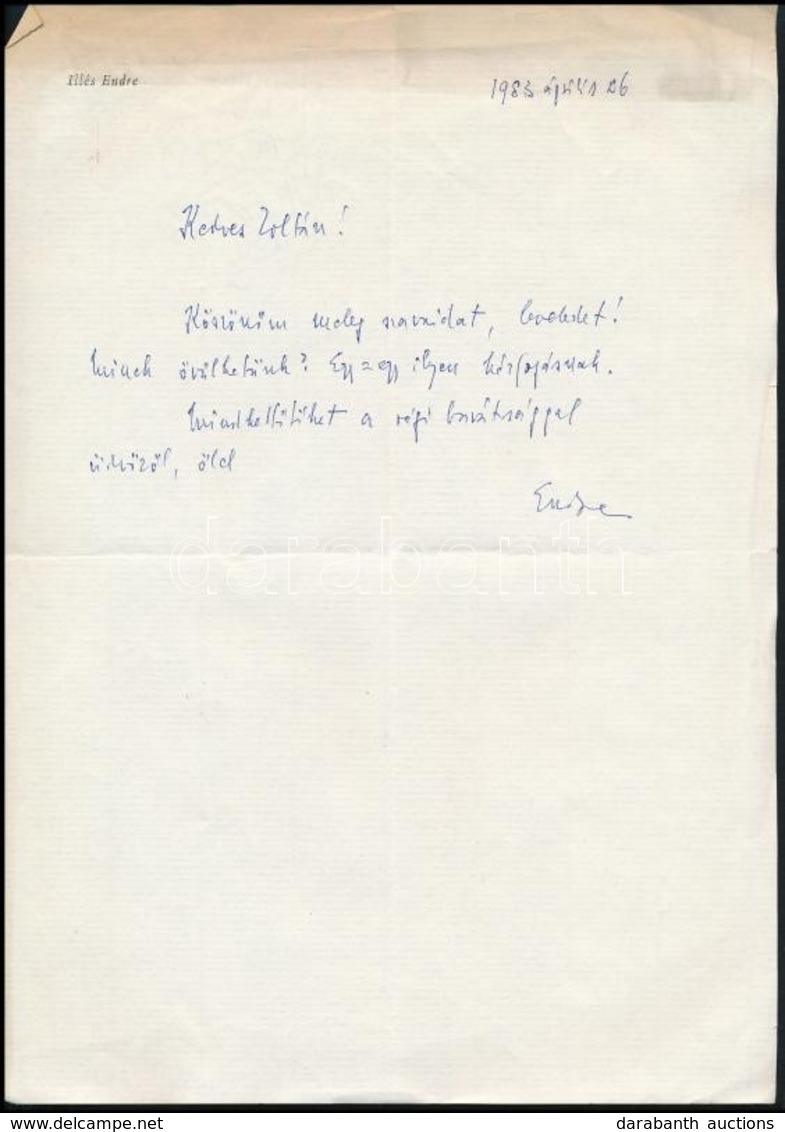 Illés Endre
1983 április 26
Kedves Zoltán!
Köszönöm meleg szavaidat, leveledet!
Minek örülhetünk? Egy=egy ilyen kézfogásnak.
Mindkettőtöket a régi barátsággal
üdvözöl, ölel
Endre
darabanth
delcampe.net
darabanth auctions